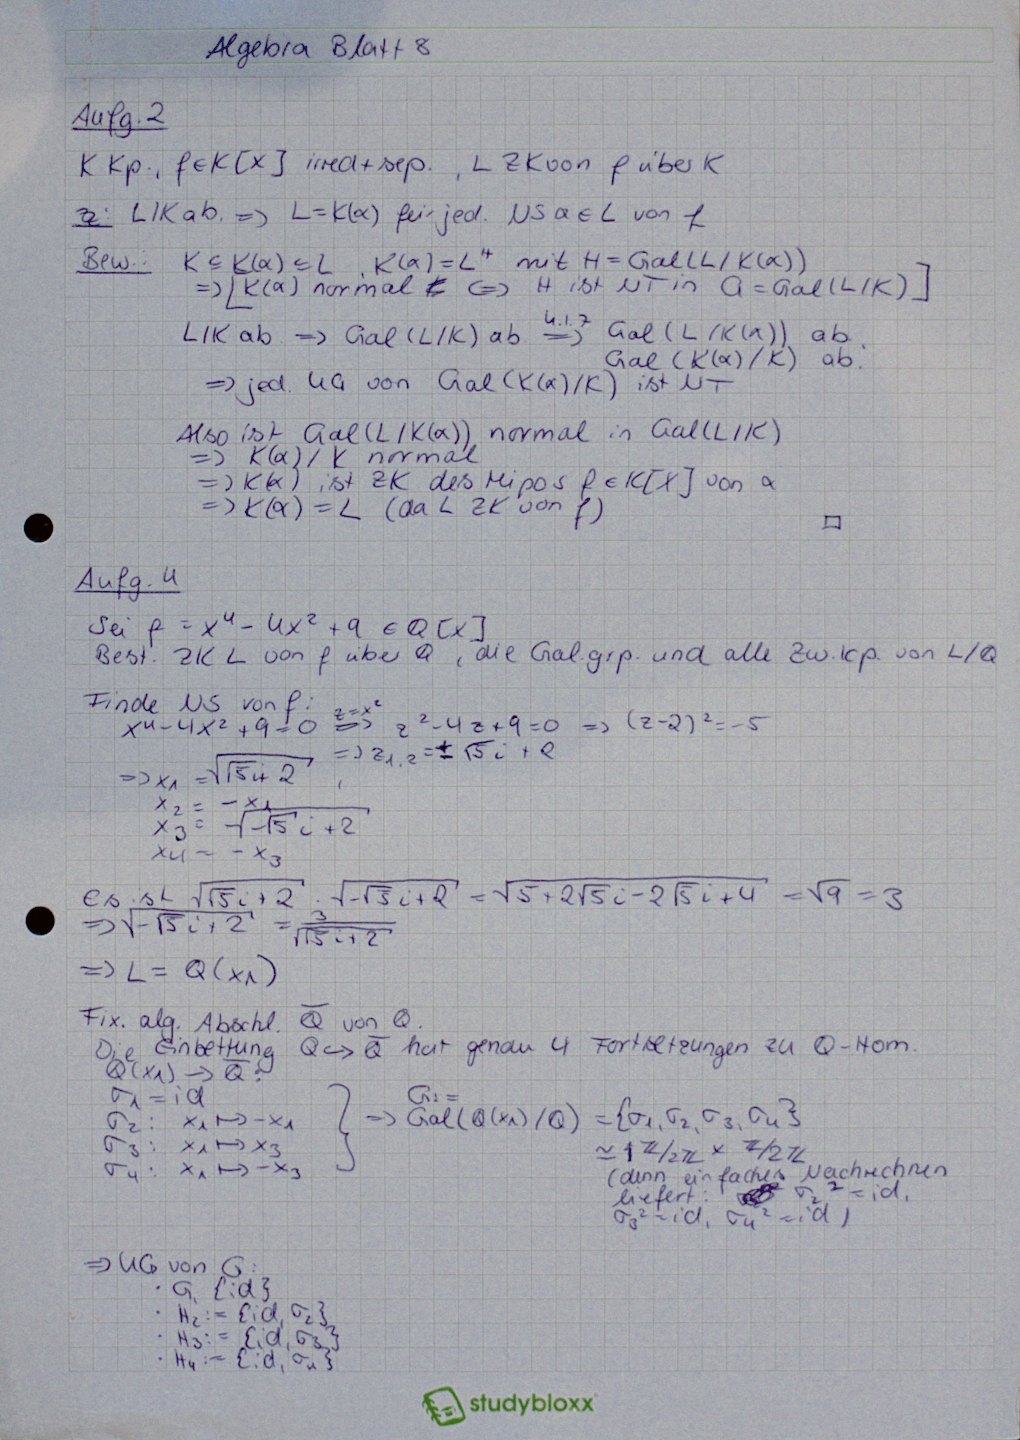 Algebra Blatt 8
Aufg. 2
K Kp., f∈K[X] irred+sep., L ZK von f über K
Zz: L/K ab. => L=K(α) für jed. NS α∈L von f
Bew.: K ⊆ K(α) ⊆ L, K(α)=L^H mit H=Gal(L/K(α))
=> [K(α) normal <=> H ist NT in G=Gal(L/K)]
L/K ab => Gal(L/K) ab =4.1.7=> Gal(L/K(α)) ab.
Gal(K(α)/K) ab.
=> jed. UG von Gal(K(α)/K) ist NT
Also ist Gal(L/K(α)) normal in Gal(L/K)
=> K(α)/K normal
=> K(α) ist ZK des Mipos f∈K[X] von α
=> K(α) = L (da L ZK von f)
□
Aufg. 4
Sei f = x⁴ - 4x² + 9 ∈ Q[X]
Best. ZK L von f über Q, die Gal.grp. und alle Zw.kp. von L/Q
Finde NS von f:
x⁴-4x²+9=0 =z=x²=> z²-4z+9=0 => (z-2)²=-5
=> z₁,₂=±√5i+2
=> x₁ = √(√5i+2),
x₂ = -x₁
x₃ = √(-√5i+2)
x₄ = -x₃
Es ist √(√5i+2) · √(-√5i+2) = √(5+2√5i-2√5i+4) = √9 = 3
=> √(-√5i+2) = 3/√(√5i+2)
=> L = Q(x₁)
Fix. alg. Abschl. Q̄ von Q.
Die Einbettung Q↪Q̄ hat genau 4 Fortsetzungen zu Q-Hom.
Q(x₁) → Q̄:
σ₁ = id
σ₂: x₁ ↦ -x₁
σ₃: x₁ ↦ x₃
σ₄: x₁ ↦ -x₃
} => G:= Gal(Q(x₁)/Q) = {σ₁, σ₂, σ₃, σ₄}
≃ Z/2Z × Z/2Z
(denn einfaches Nachrechnen
liefert: σ₂² = id,
σ₃² = id, σ₄² = id)
=> UG von G:
· G, {id}
· H₂ := {id, σ₂}
· H₃ := {id, σ₃}
· H₄ := {id, σ₄}
studybloxx